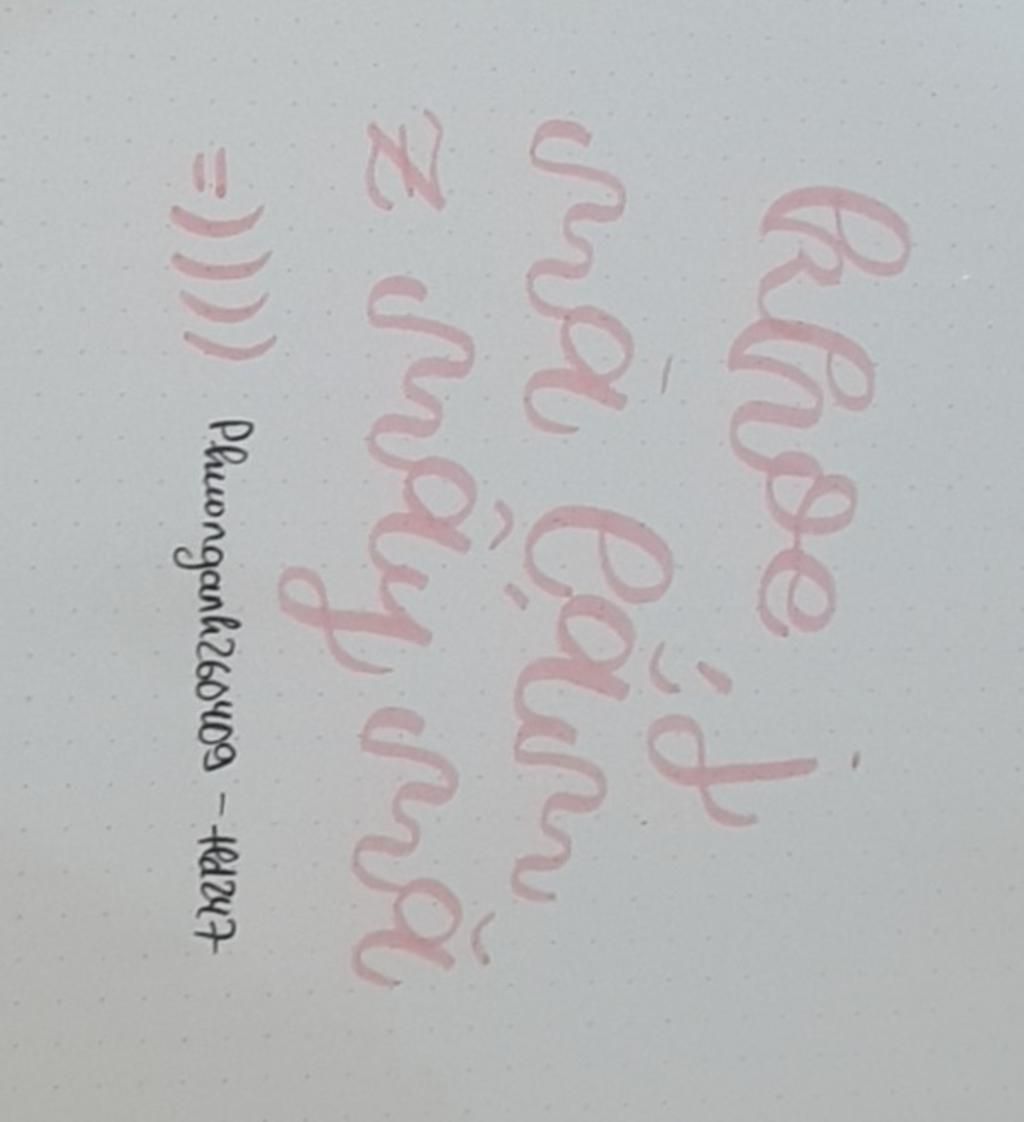 khoe j
mà lắm
z mấy mă
=)))) Phuonganh260409 - Hd247